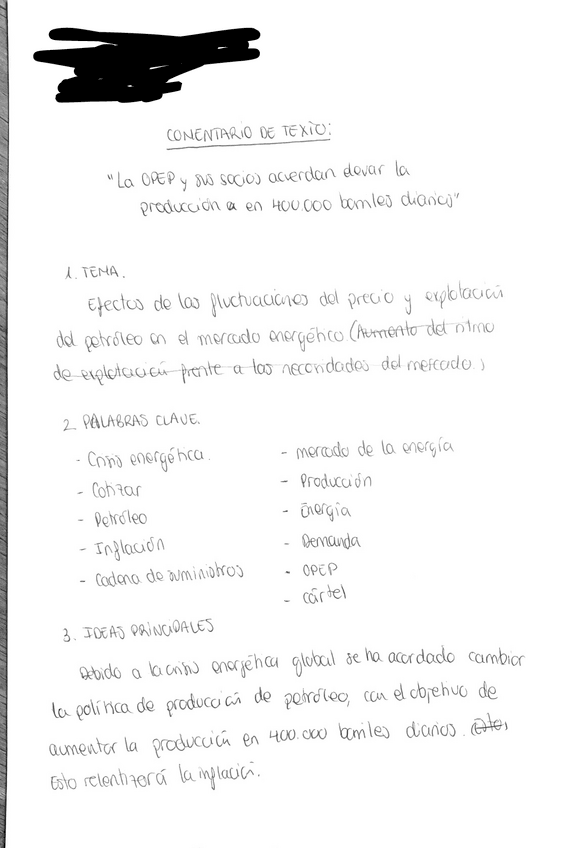 COMENTARIO DE TEXTO:
"La OPEP y sus socios acuerdan elevar la
producción a en 400.000 barriles diarios"
1. TEMA.
Efectos de las fluctuaciones del precio y explotación
del petróleo en el mercado energético. (Aumento del ritmo
de explotación frente a las necesidades del mercado.)
2. PALABRAS CLAVE.
- Crisis energética.
- Cotizar
- Petróleo
- Inflación
- Cadena de suministros
- mercado de la energía
- Producción
- Energía
- Demanda
- OPEP
- cártel
3. IDEAS PRINCIPALES
Debido a la crisis energética global se ha acordado cambiar
la política de producción de petróleo, con el objetivo de
aumentar la producción en 400.000 barriles diarios.
Esto relentizará la inflación.